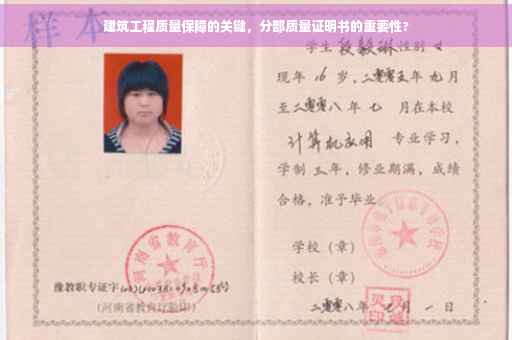 建筑工程质量保障的关键，分部质量证明书的重要性？
样本
学生段毅琳性别女
现年16岁，二零零五年九月
至二零零八年七月在本校
计算机应用专业学习，
学制三年，修业期满，成绩
合格，准予毕业
学校（章）
校长（章）
二零零八年七月一日
河南省教育厅
豫教职专证字
（河南省教育厅验印）